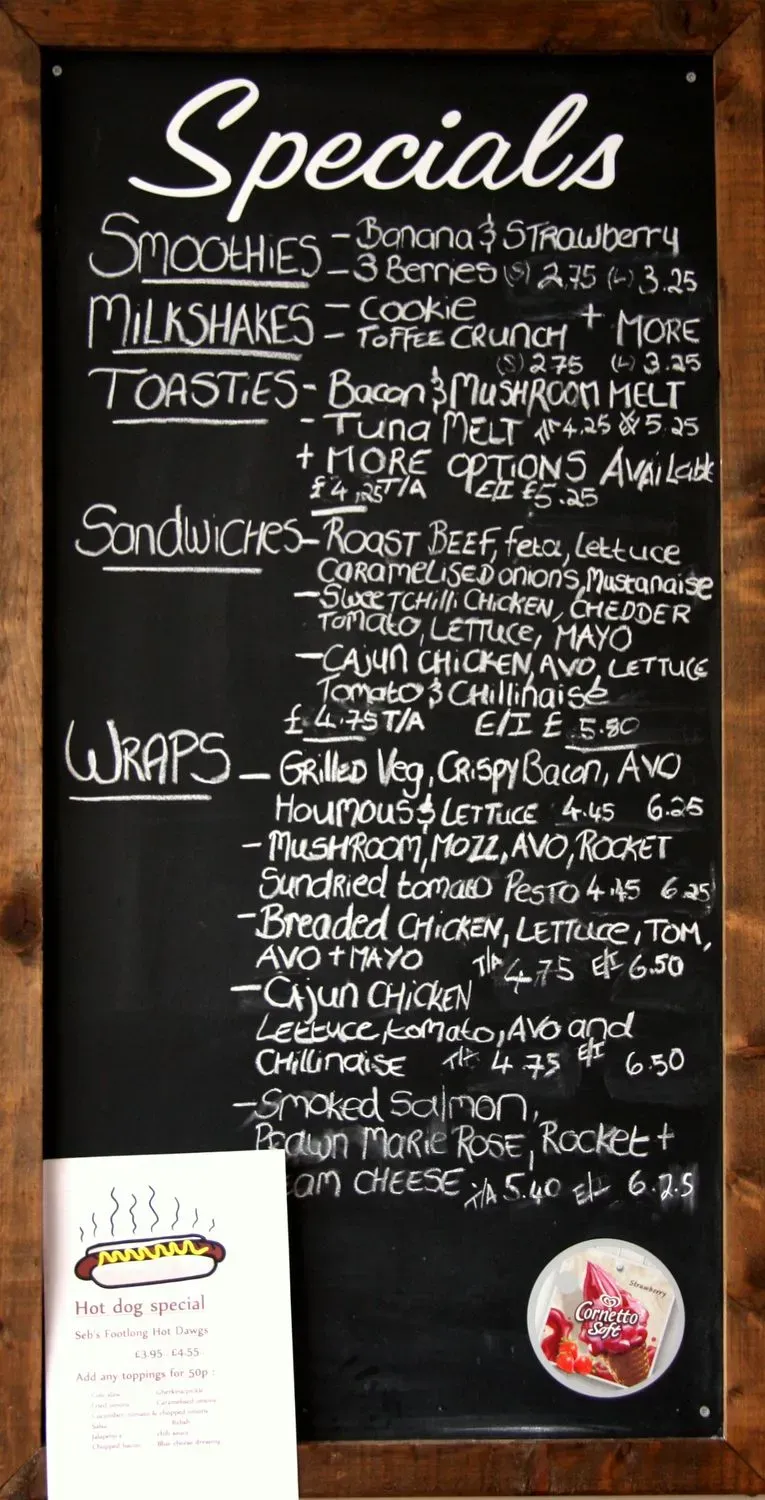 Specials
SMOOTHIES - Banana & STRawberry
- 3 Berries (S) 2.75 (L) 3.25
MILKSHAKES - COOKIE
- TOFFEE CRUNCH + MORE
(S) 2.75 (L) 3.25
TOASTIES - Bacon & MUSHROOM MELT
- Tuna MELT 4.25 5.25
+ MORE OPTIONS AVAILABLE
£4.25 T/A E/I £5.25
Sandwiches - ROAST BEEF, feta, Lettuce
CARAMELISED onions, Mustanaise
- SWEETCHILLI CHICKEN, CHEDDER
TOMATO, LETTUCE, MAYO
- CAJUN CHICKEN, AVO, LETTUCE
Tomato & CHILLINAISE
£4.75 T/A E/I £5.80
WRAPS - GRILLED Veg, CRISPY Bacon, AVO
HOUMOUS & LETTUCE 4.45 6.25
- MUSHROOM, MOZZ, AVO, ROCKET
Sundried tomato PESTO 4.45 6.25
- Breaded CHICKEN, LETTUCE, TOM,
AVO + MAYO T/A 4.75 E/I 6.50
- Cajun CHICKEN
Lettuce, tomato, AVO and
CHILLINAISE T/A 4.75 E/I 6.50
- Smoked Salmon,
Prawn MARIE ROSE, Rocket +
eam CHEESE T/A 5.40 E/I 6.25
Hot dog special
Seb's Footlong Hot Dawgs
£3.95 £4.55
Add any toppings for 50p :
Fried onions Caramelised onions
Cucumber, tomato & chopped onions
Salsa Relish
Jalapeno's chili sauce
Chopped bacon Blue cheese dressing
Strawberry
Cornetto
Soft